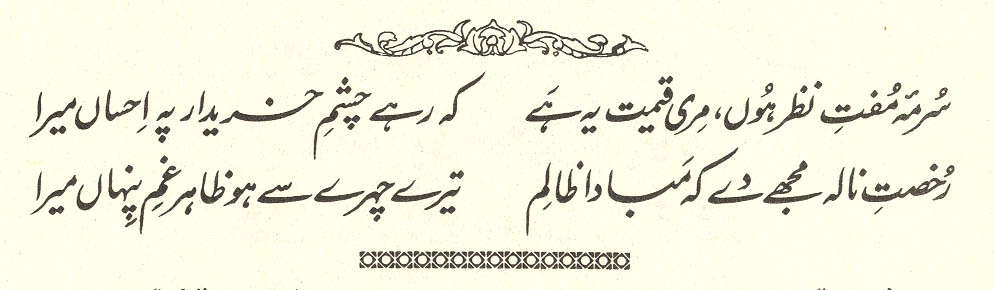 سُرمۂ مُفتِ نظر ہُوں، مِری قیمت یہ ہَے کہ رہے چشمِ خریدار پہ اِحساں میرا
رُخصتِ نالہ مجھے دے کہ مَبادا ظالِم تیرے چہرے سے ہو ظاہر غمِ پِنہاں میرا